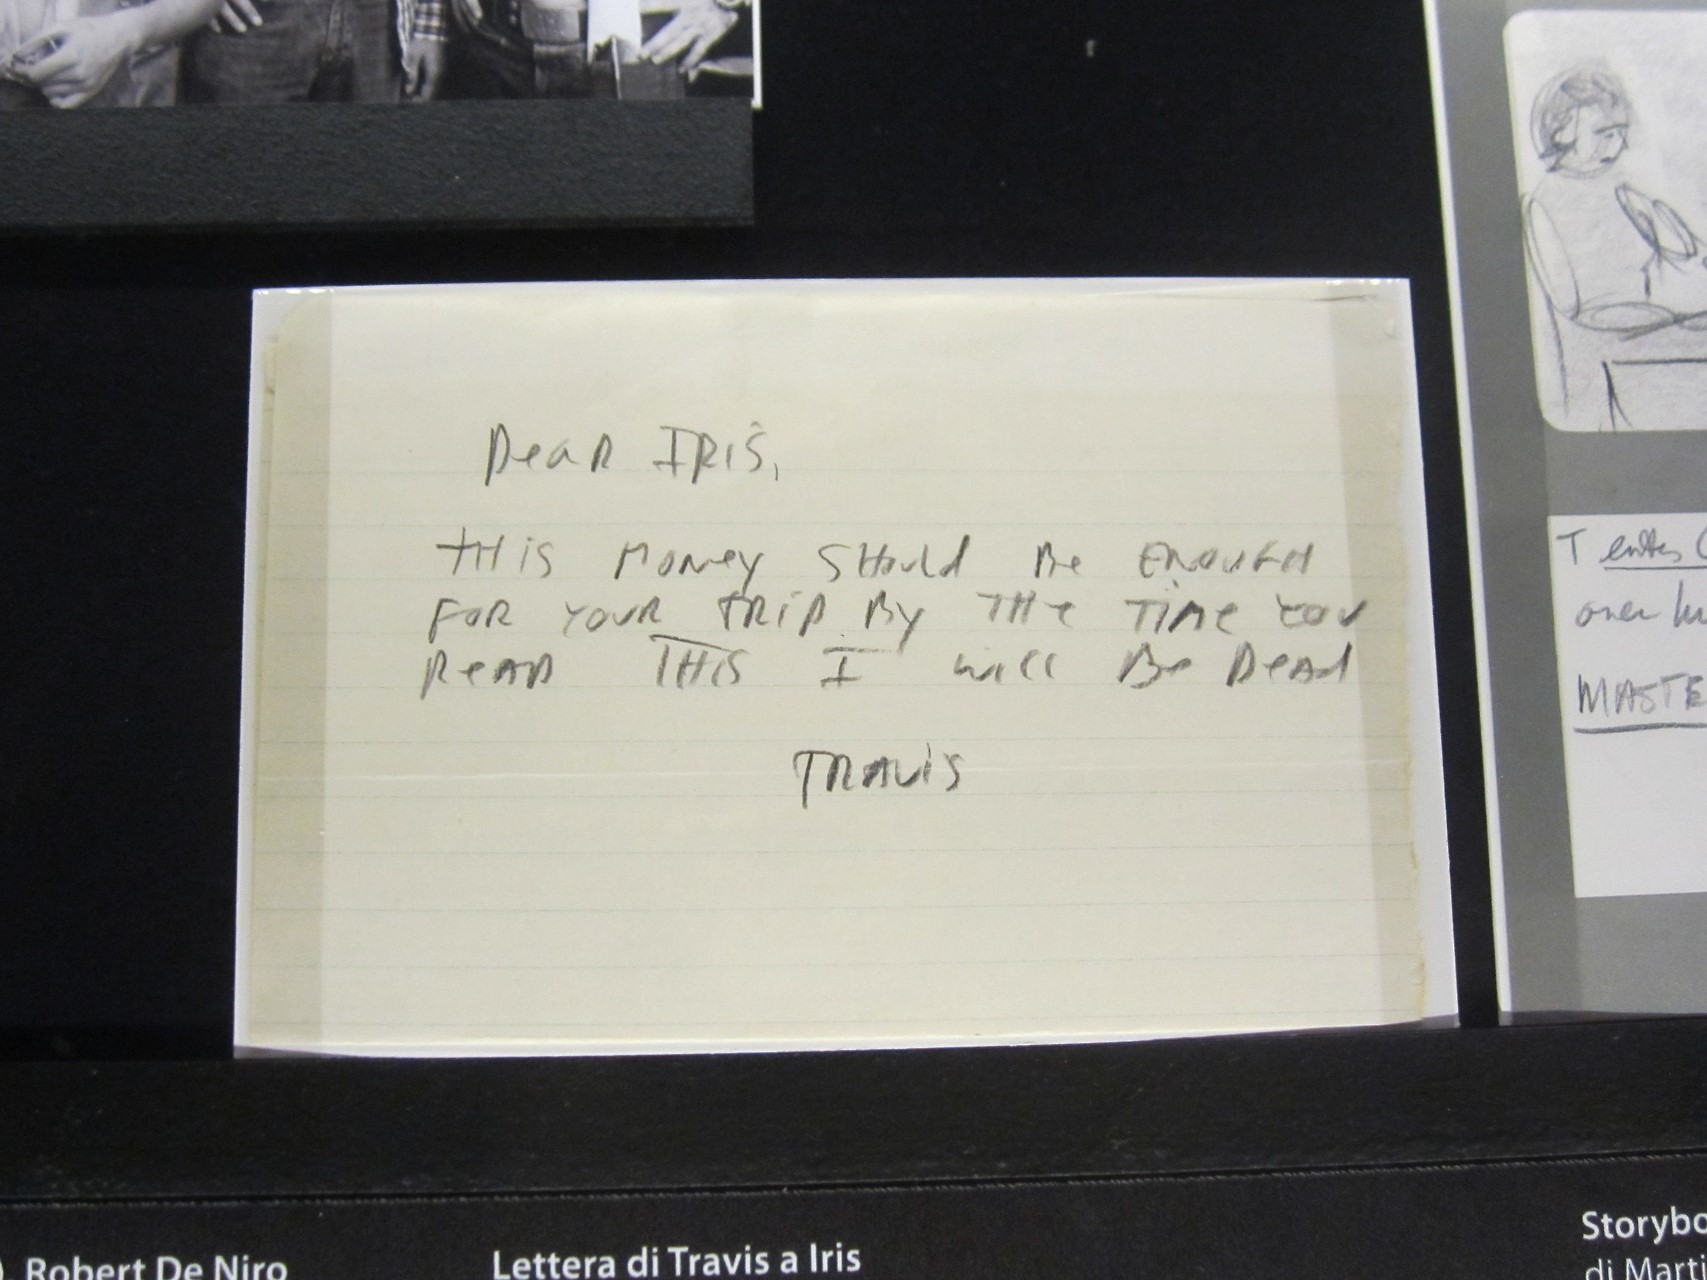 Dear IRiS,
tHiS MONey SHould Be ENOUGH
FOR YOUR tRiP. By THe TiMe YOU
ReAD THiS I will Be DeAd
TRAViS
T enters
over
MASTE
Robert De Niro
Lettera di Travis a Iris
Storybo
di Marti